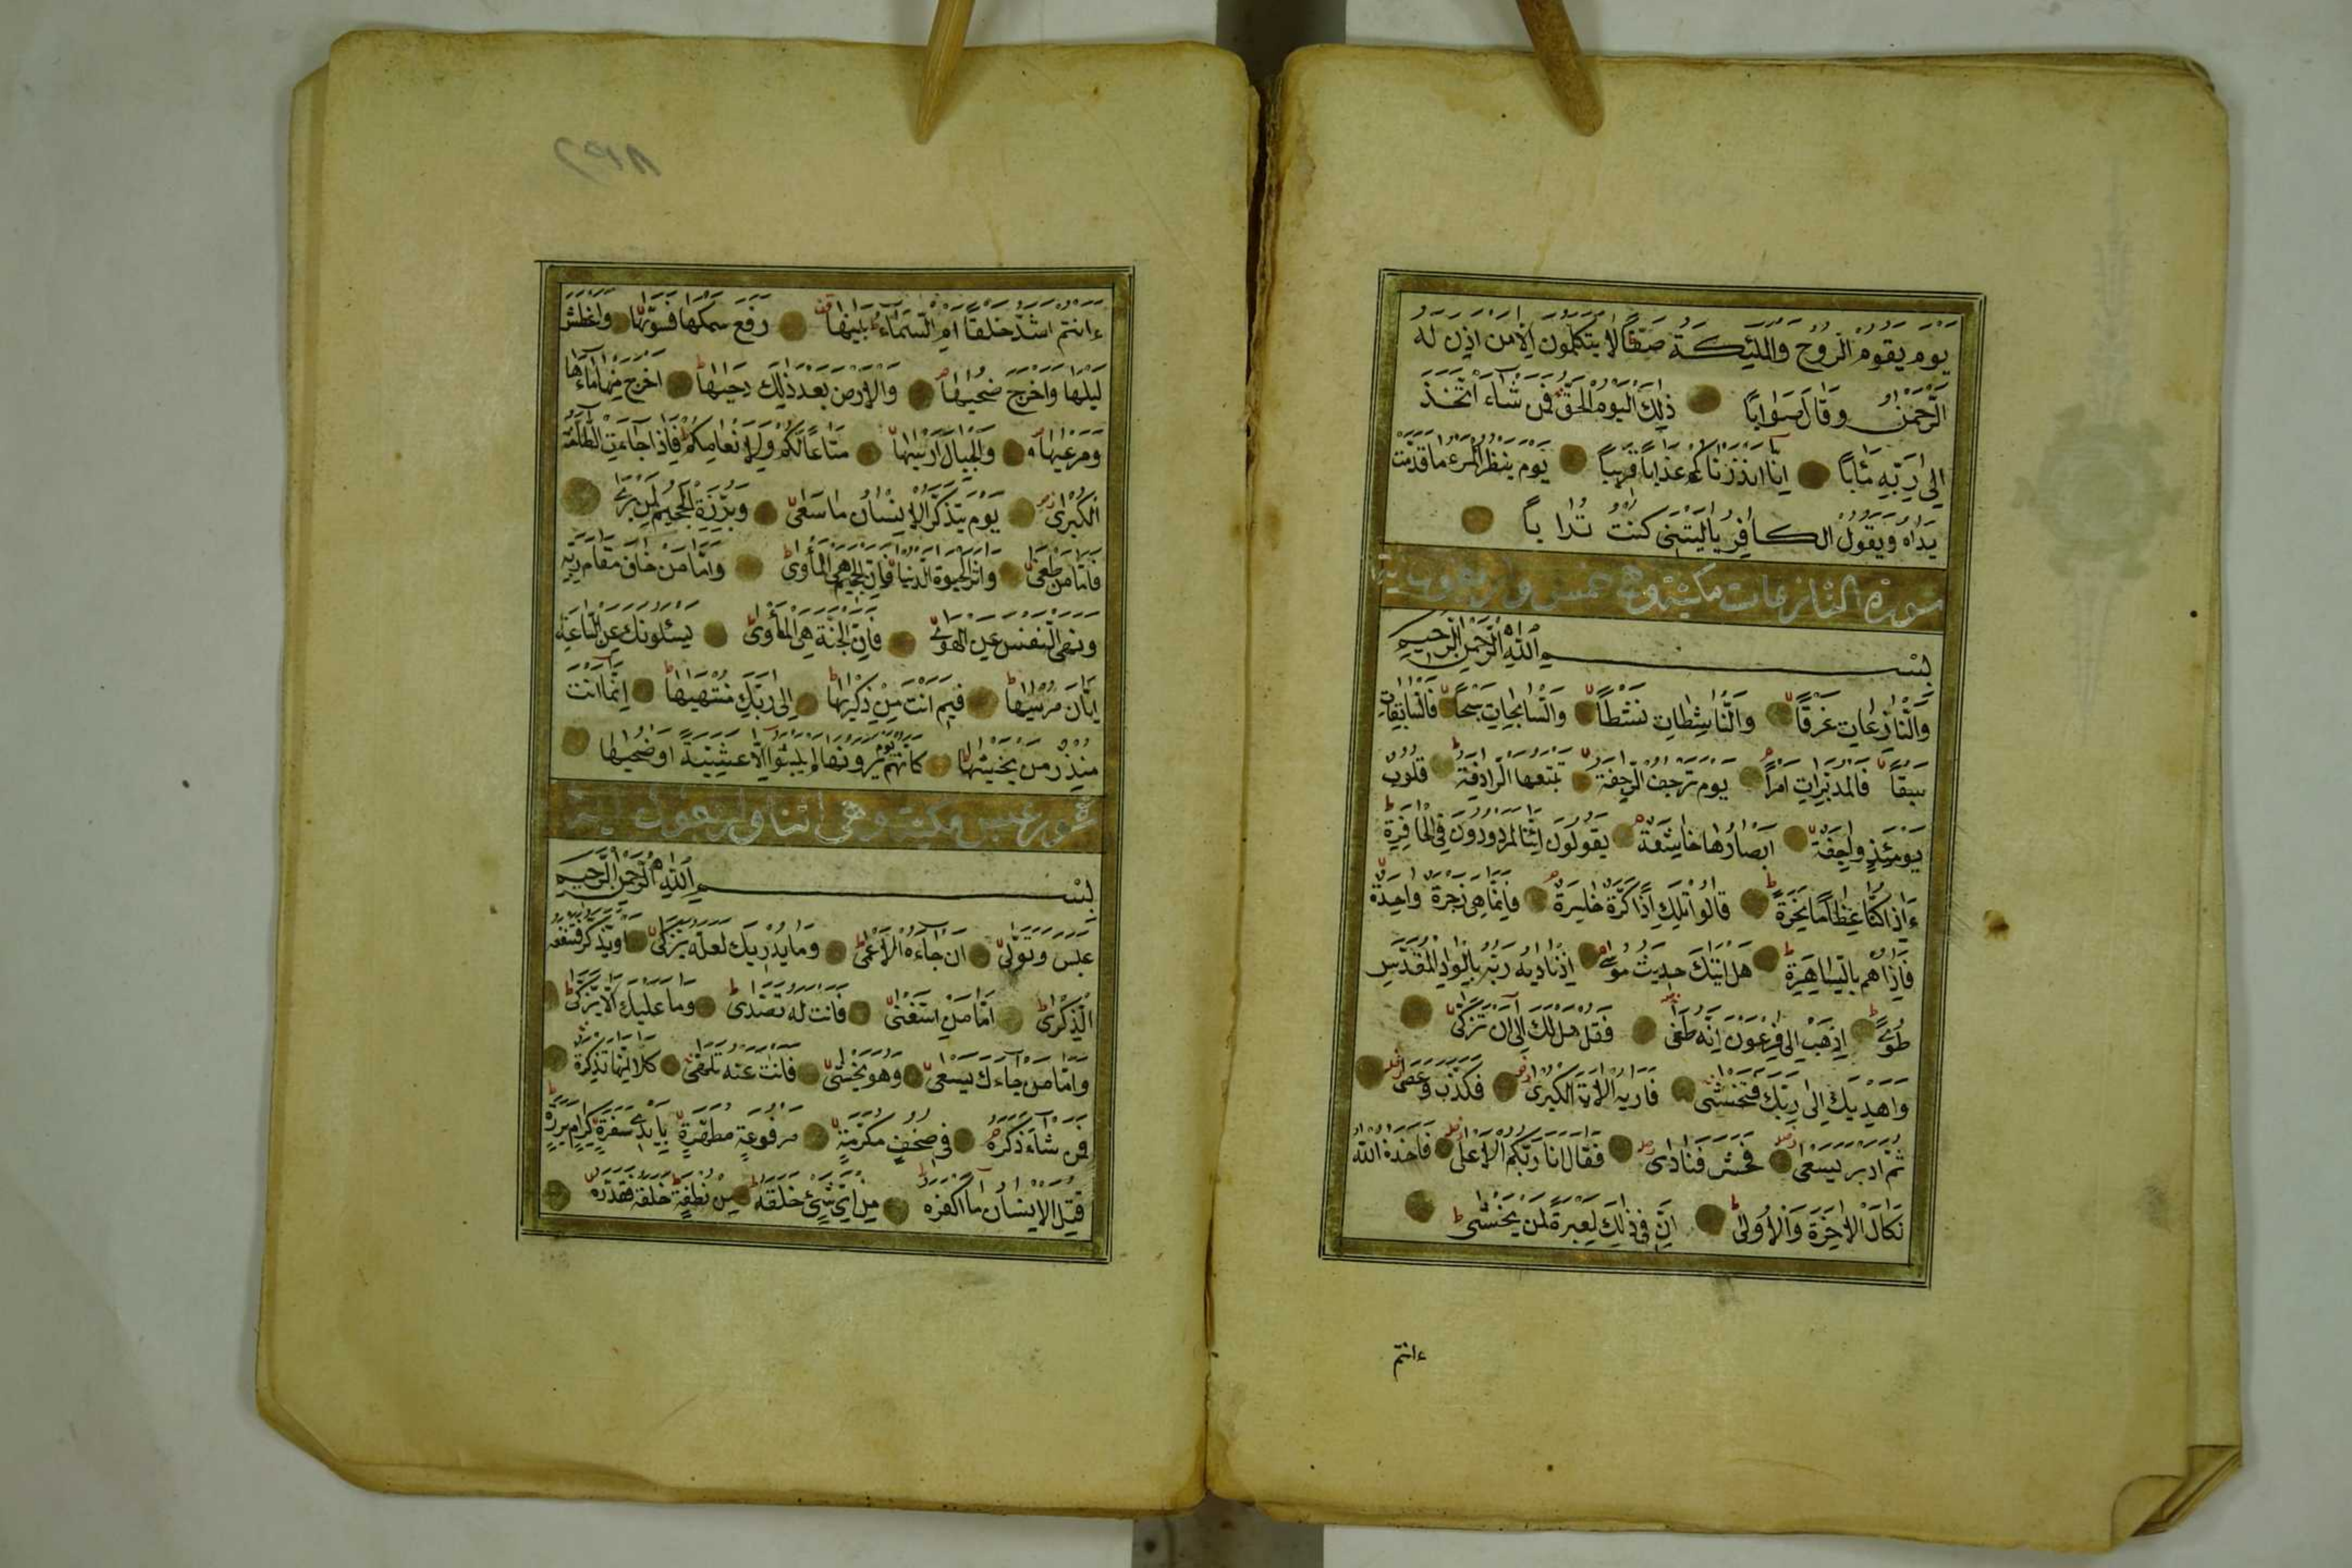 يوم يقوم الروح والملئكة صفا لا يتكلمون الا من اذن له
الرحمن وقال صوابا ذلك اليوم الحق فمن شاء اتخذ
الى ربه مئابا انا انذرناكم عذابا قريبا يوم ينظر المرء ما قدمت
يداه ويقول الكافر ياليتنى كنت ترابا
سورة النازعات مكية وهى خمس واربعون اية
بسم الله الرحمن الرحيم
والنازعات غرقا والناشطات نشطا والسابحات سبحا فالسابقات
سبقا فالمدبرات امرا يوم ترجف الرجفة تتبعها الرادفة قلوب
يومئذ واجفة ابصارها خاشعة يقولون ائنا لمردودون فى الحافرة
ءاذا كنا عظاما نخرة قالوا تلك اذا كرة خاسرة فانما هى زجرة واحدة
فاذا هم بالساهرة هل اتيك حديث موسى اذ ناديه ربه بالواد المقدس
طوى اذهب الى فرعون انه طغى فقل هل لك الى ان تزكى
واهديك الى ربك فتخشى فاريه الاية الكبرى فكذب وعصى
ثم ادبر يسعى فحشر فنادى فقال انا ربكم الاعلى فاخذه الله
نكال الاخرة والاولى ان فى ذلك لعبرة لمن يخشى
ءانتم
٢٩٨
ءانتم اشد خلقا ام السماء بنيها رفع سمكها فسويها واغطش
ليلها واخرج ضحيها والارض بعد ذلك دحيها اخرج منها ماءها
ومرعيها والجبال ارسيها متاعا لكم ولانعامكم فاذا جاءت الطامة
الكبرى يوم يتذكر الانسان ما سعى وبرزت الجحيم لمن يرى
فاما من طغى واثر الحيوة الدنيا فان الجحيم هى المأوى واما من خاف مقام ربه
ونهى النفس عن الهوى فان الجنة هى المأوى يسئلونك عن الساعة
ايان مرسيها فيم انت من ذكريها الى ربك منتهيها انما انت
منذر من يخشيها كانهم يوم يرونها لم يلبثوا الا عشية او ضحيها
سورة عبس مكية وهى اثنا واربعون اية
بسم الله الرحمن الرحيم
عبس وتولى ان جاءه الاعمى وما يدريك لعله يزكى او يذكر فتنفعه
الذكرى اما من استغنى فانت له تصدى وما عليك الا يزكى
واما من جاءك يسعى وهو يخشى فانت عنه تلهى كلا انها تذكرة
فمن شاء ذكره فى صحف مكرمة مرفوعة مطهرة بايدى سفرة كرام بررة
قتل الانسان ما اكفره من اى شئ خلقه من نطفة خلقه فقدره